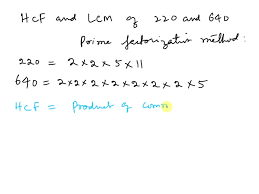 HCF and LCM of 220 and 640
Prime factorization method:
220 = 2 × 2 × 5 × 11
640 = 2×2×2×2×2×2×2×5
HCF = Product of comm